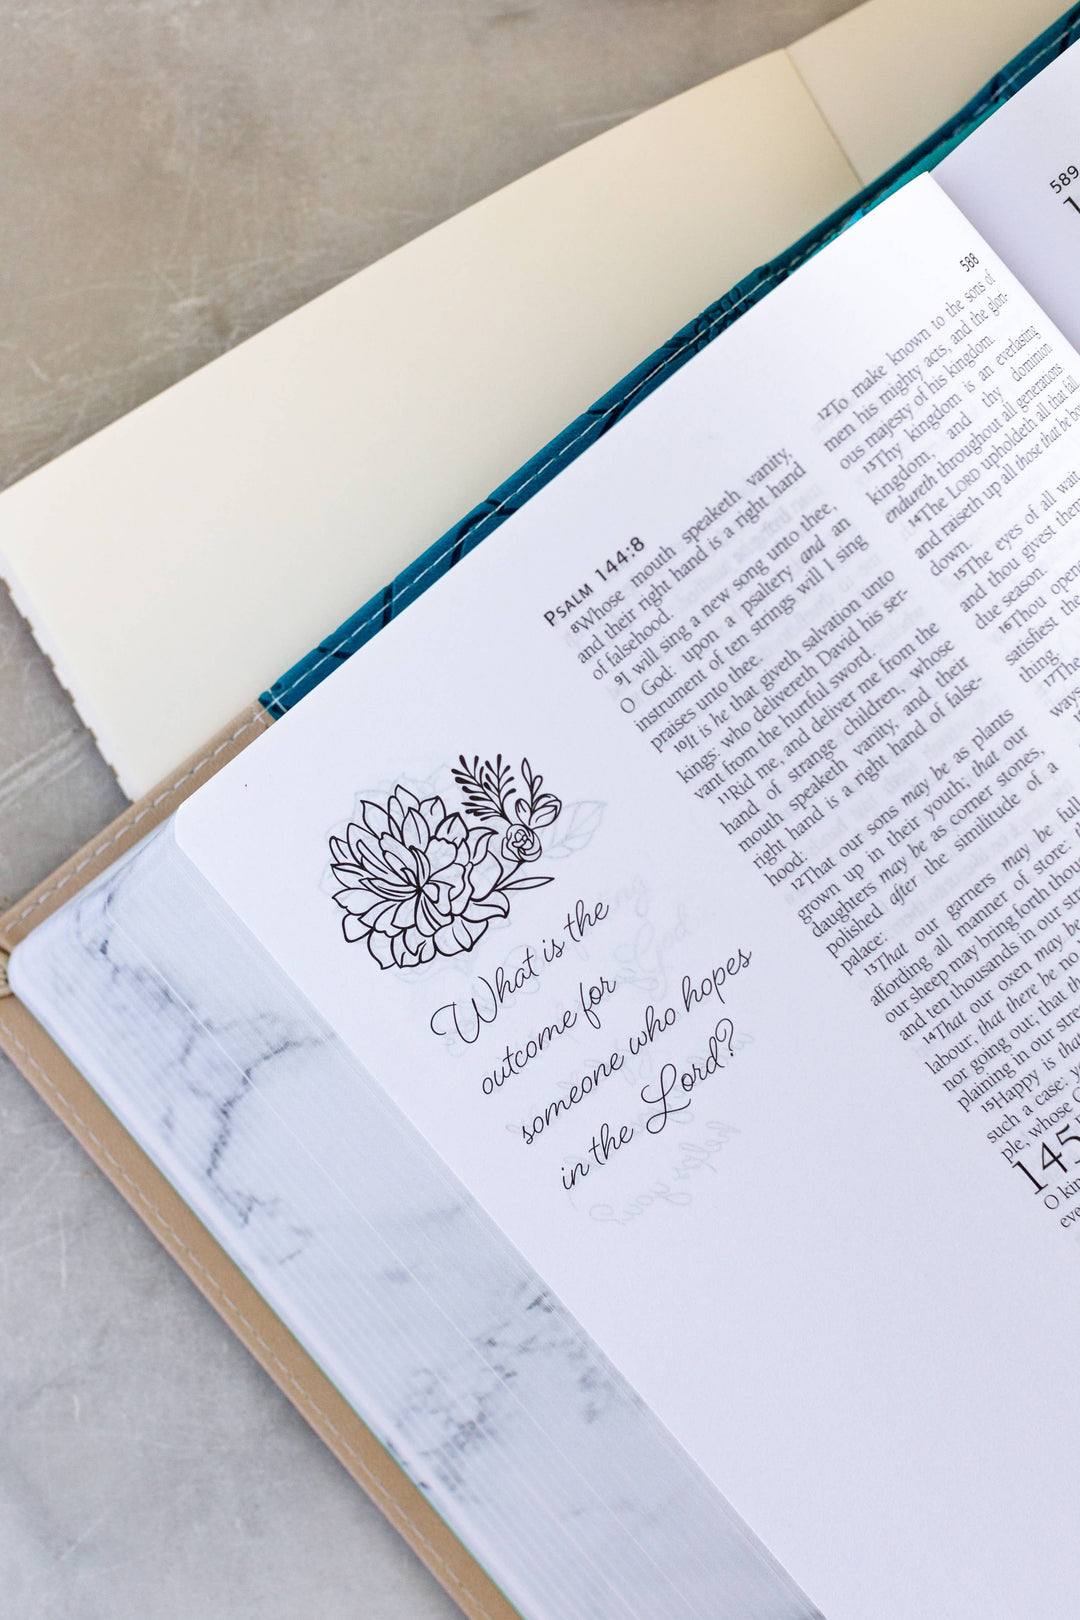 588
PSALM 144:8
8Whose mouth speaketh vanity,
and their right hand is a right hand
of falsehood.
9I will sing a new song unto thee,
O God: upon a psaltery and an
instrument of ten strings will I sing
praises unto thee.
10It is he that giveth salvation unto
kings: who delivereth David his ser-
vant from the hurtful sword.
11Rid me, and deliver me from the
hand of strange children, whose
mouth speaketh vanity, and their
right hand is a right hand of false-
hood:
12That our sons may be as plants
grown up in their youth; that our
daughters may be as corner stones,
polished after the similitude of a
palace:
13That our garners may be full,
affording all manner of store:
our sheep may bring forth
and ten thousands in our
14That our oxen may be
labour; that there be no
nor going out; that
plaining in our
15Happy is that
such a case:
ple, whose
145
O
12To make known to the sons of
men his mighty acts, and the glori-
ous majesty of his kingdom.
13Thy kingdom is an everlasting
kingdom, and thy dominion
endureth throughout all generations
14The LORD upholdeth all that fall,
and raiseth up all those that be
down.
15The eyes of all wait
and thou givest
due season.
16Thou
satisfiest the
thing.
17The
ways
What is the
outcome for
someone who hopes
in the Lord?
589